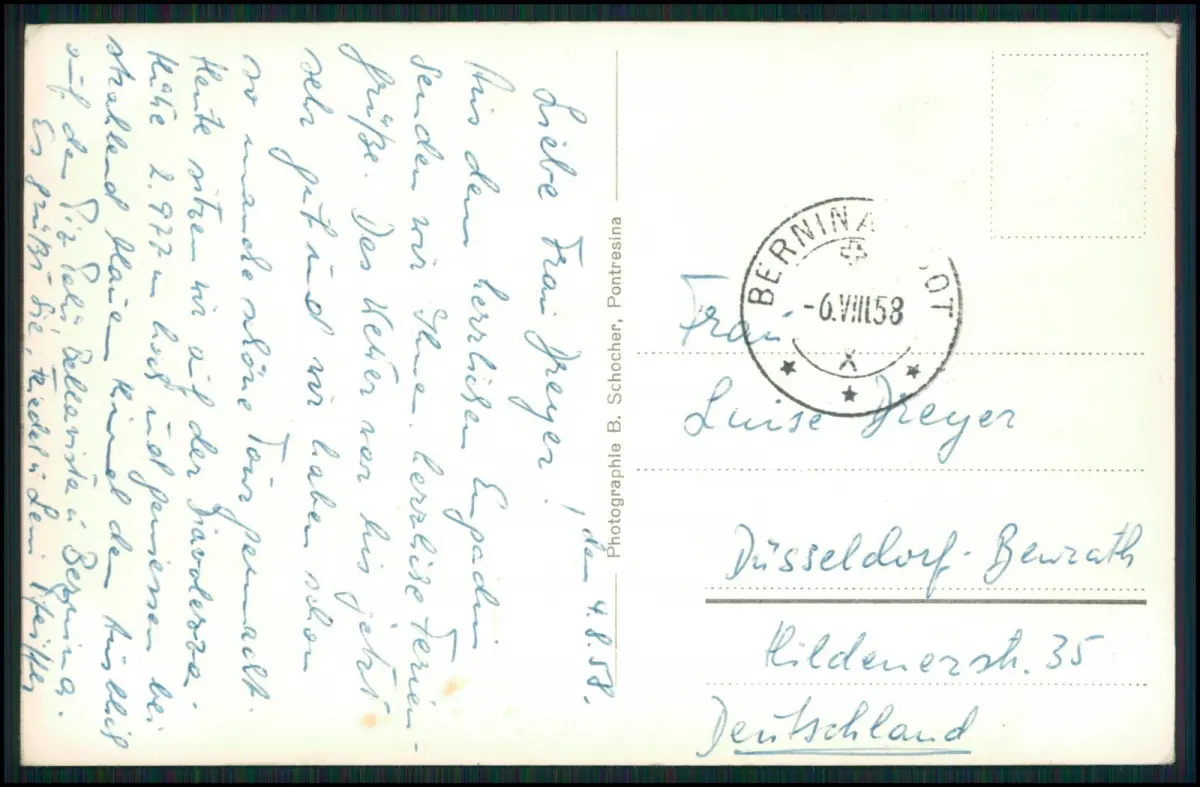 den 4.8.58.
Liebe Frau Dreyer!
Aus dem herrlichen Engadin
senden wir Ihnen herzliche Ferien-
grüße. Das Wetter war bis jetzt
sehr gut und wir haben schon
so manche schöne Tour gemacht.
Heute sitzen wir auf der Diavolezza-
Hütte 2.977 m hoch und geniessen bei
strahlend blauem Himmel den Ausblick
auf den Piz Palü, Bellavista u Bernina.
Es grüßt Sie, Friedel u Leni Pfeiffer
Photographie B. Schocher, Pontresina
BERNINA OT
-6.VIII.58
X
Frau
Luise Dreyer
Düsseldorf-Benrath
Hildenerstr. 35
Deutschland